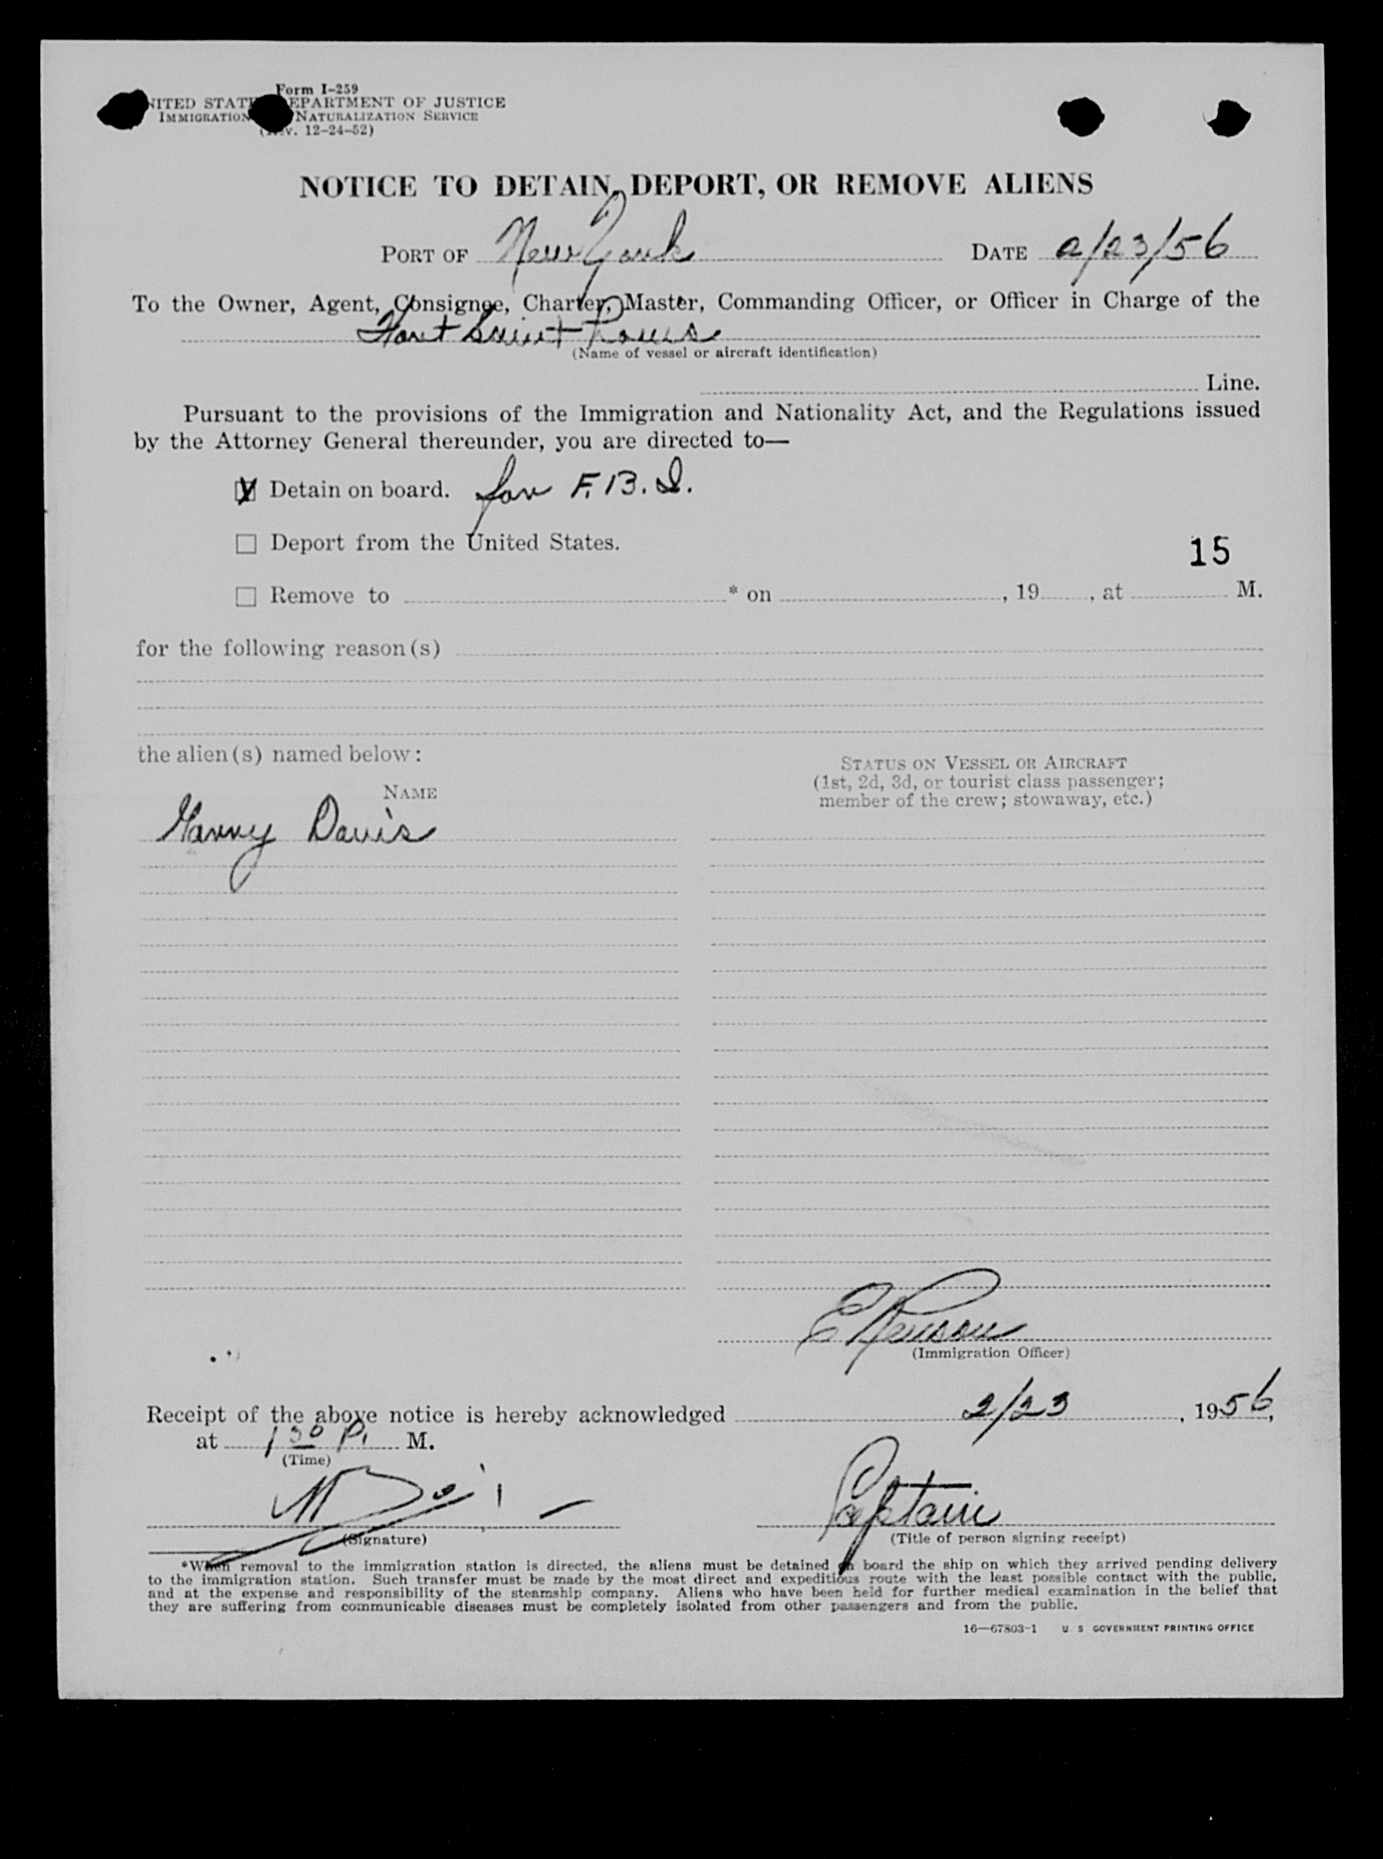 Form I-259
UNITED STATES DEPARTMENT OF JUSTICE
IMMIGRATION NATURALIZATION SERVICE
(Rev. 12-24-52)
NOTICE TO DETAIN, DEPORT, OR REMOVE ALIENS
PORT OF New York DATE 2/23/56
To the Owner, Agent, Consignee, Charter, Master, Commanding Officer, or Officer in Charge of the
Fort Saint Louis
(Name of vessel or aircraft identification)
Line.
Pursuant to the provisions of the Immigration and Nationality Act, and the Regulations issued
by the Attorney General thereunder, you are directed to—
Detain on board. for F.B.I.
Deport from the United States.
15
Remove to * on , 19 , at M.
for the following reason(s)
the alien(s) named below:
STATUS ON VESSEL OR AIRCRAFT
(1st, 2d, 3d, or tourist class passenger;
member of the crew; stowaway, etc.)
NAME
Davis
E
(Immigration Officer)
Receipt of the above notice is hereby acknowledged 2/23, 1956,
at 1 30 P. M.
(Time)
Captain
(Signature) (Title of person signing receipt)
*When removal to the immigration station is directed, the aliens must be detained on board the ship on which they arrived pending delivery
to the immigration station. Such transfer must be made by the most direct and expeditious route with the least possible contact with the public,
and at the expense and responsibility of the steamship company. Aliens who have been held for further medical examination in the belief that
they are suffering from communicable diseases must be completely isolated from other passengers and from the public.
16—67803-1 U S GOVERNMENT PRINTING OFFICE